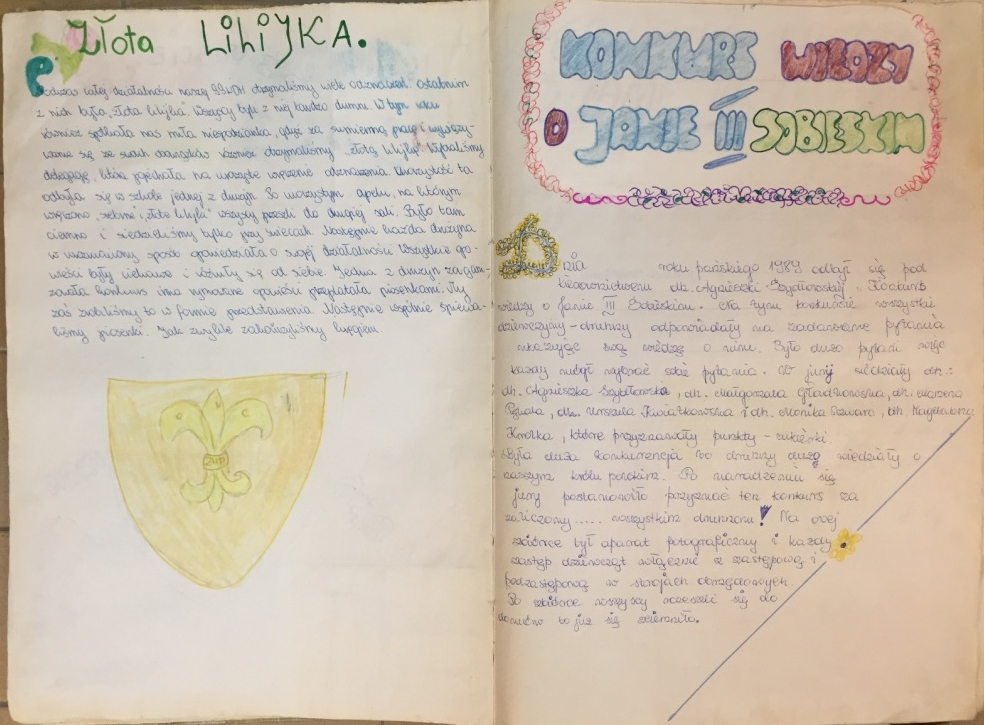 Złota LiLiJKA.
Podczas całej działalności naszej 99WDH otrzymaliśmy wiele odznaczeń ostatnim
z nich była "złota lilijka". Wszyscy byli z niej bardzo dumni. W tym roku
również spotkała nas miła niespodzianka, gdyż za sumienną pracę i wywiązy-
wanie się ze swoich obowiązków również otrzymaliśmy "złotą lilijkę". Wybraliśmy
delegację, która pojechała na uroczyste wręczenie odznaczenia. Uroczystość ta
odbyła się w szkole jednej z drużyn. Po uroczystym apelu, na którym
wręczono "złote lilijki" wszyscy przeszli do drugiej sali. Było tam
ciemno i siedzieliśmy tylko przy świecach. Następnie każda drużyna
w umówiony sposób opowiadała o swojej działalności. Wszystkie opo-
wieści były ciekawe i różniły się od siebie. Jedna z drużyn zagan-
żowała konkurs inna rymowane opowieści przeplatała piosenkami. My
zaś zrobiliśmy to w formie przedstawienia. Następnie wspólnie śpiewa-
liśmy piosenki. Jak zwykle zakończyliśmy kręgiem.
KONKURS WIEDZY
O JANIE III SOBIESKIM
Dnia roku pańskiego 1989 odbył się pod
kierownictwem dh. Agnieszki Szydłowskiej "Konkurs
wiedzy o Janie III Sobieskim". Na tym konkursie wszystkie
dziewczyny-druhny odpowiadały na zadawane pytania
ukazując swą wiedzę o nim. Było dużo pytań więc
każdy mógł wybrać sobie pytania. W jury siedziały dh.:
dh. Agnieszka Szydłowska, dh. Małgorzata Gładkowska, dh. Marzena
dh. Urszula Kwiatkowska i dh. Monika Szwarc, dh Magdalena
które przyznawały punkty - cukierki.
Była duża konkurencja bo druhny dużo wiedziały o
naszym królu polskim. Po naradzeniu się
jury postanowiło przyznać ten konkurs za
zaliczony..... wszystkim druhnom! Na owej
zbiórce był aparat fotograficzny i każdy
zastęp dziewcząt włącznie z zastępową i
podzastępową w strojach obrzędowych.
Po zbiórce wszyscy rozeszli się do
domów bo już się ściemniło.